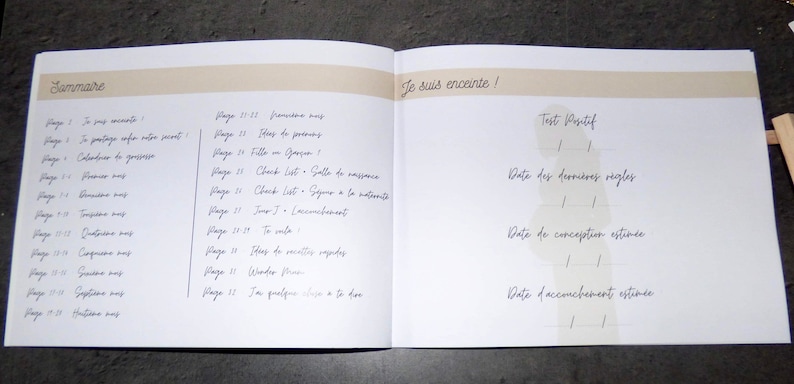 Sommaire
Page 2 Je suis enceinte !
Page 3 Je partage enfin notre secret !
Page 4 Calendrier de grossesse
Page 5-6 Premier mois
Page 7-8 Deuxième mois
Page 9-10 Troisième mois
Page 11-12 Quatrième mois
Page 13-14 Cinquième mois
Page 15-16 Sixième mois
Page 17-18 Septième mois
Page 19-20 Huitième mois
Page 21-22 Neuvième mois
Page 23 Idées de prénoms
Page 24 Fille ou Garçon ?
Page 25 Check List • Salle de naissance
Page 26 Check List • Séjour à la maternité
Page 27 Jour J • L'accouchement
Page 28-29 Te voilà !
Page 30 Idées de recettes rapides
Page 31 Wonder Mum
Page 32 J'ai quelque chose à te dire
Je suis enceinte !
Test Positif
/ /
Date des dernières règles
/ /
Date de conception estimée
/ /
Date d'accouchement estimée
/ /